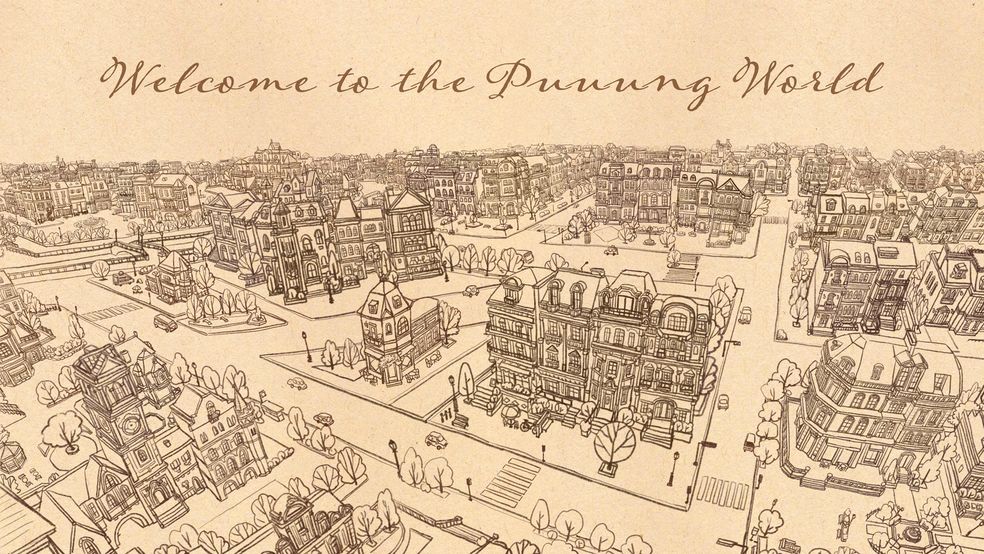 Welcome to the Puuung World